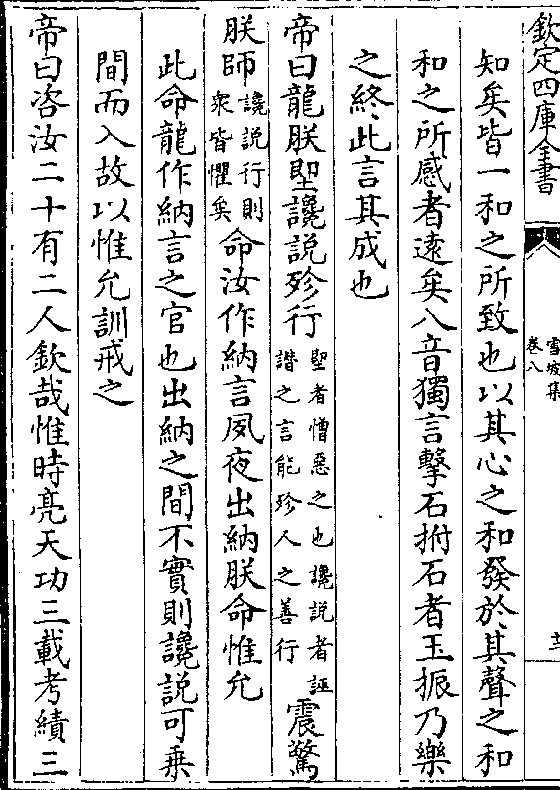 欽定四庫全書
雪坡集
卷八
十三
知矣皆一和之所致也以其心之和發於其聲之和
和之所感者遠矣八音獨言擊石拊石者玉振乃樂
之終此言其成也
帝曰龍朕堲讒説殄行堲者憎惡之也讒説者誣譛之言能殄人之善行震驚
朕師讒説行則衆皆懼矣命汝作納言夙夜出納朕命惟允
此命龍作納言之官也出納之間不實則讒説可乗
間而入故以惟允訓戒之
帝曰咨汝二十有二人欽哉惟時亮天功三載考績三